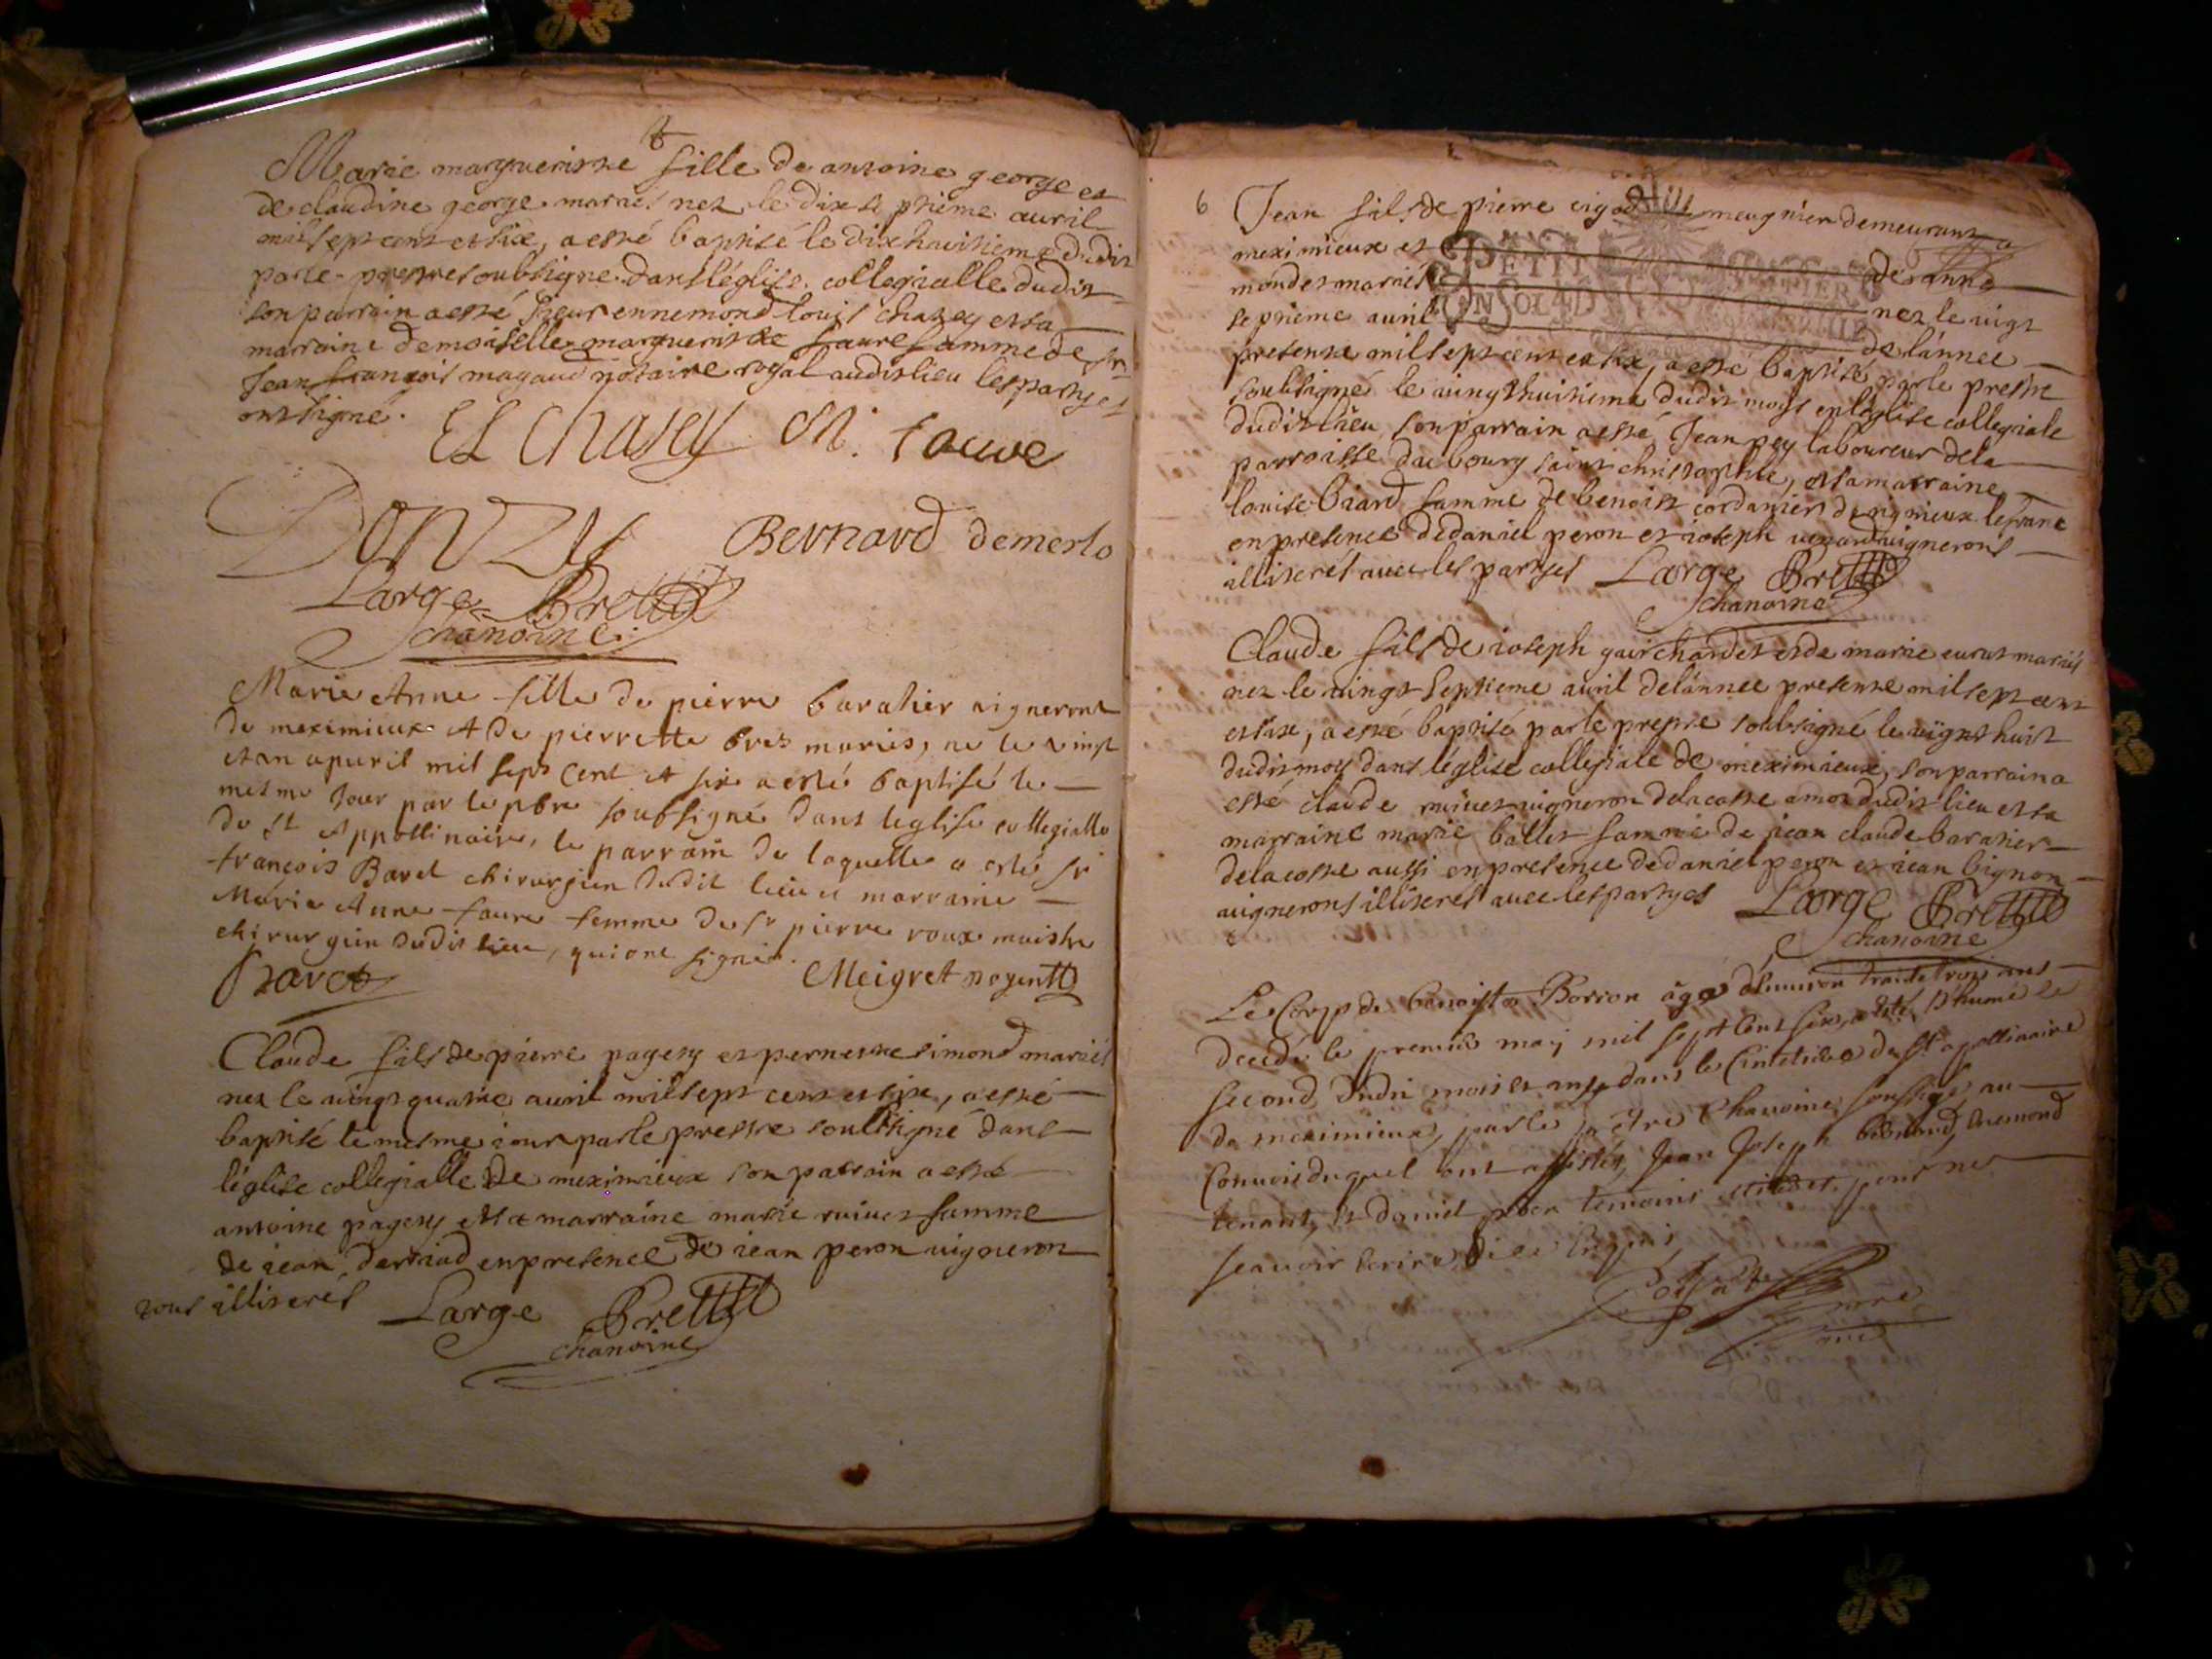 Marie margueritte fille de antoine george et
de claudine george mariés nez le dix septieme auril
mil sept cent et six, a esté baptisé le dix huitieme dudit
par le prestre soubsigne dans léglise collegialle dudit
son parrain a esté sieur ennemond louis chasey et sa
marraine demoiselle marguerite faure famme de sr
Jean francois magaud notaire royal audit lieu les partyes
ont signé.
EL Chasey M. faure
Donzy Bernard demerlo
Large
chanoine
Marie Anne fille de pierre barattier vigneront
de meximieux et de pierrette mariés, ne le vingt
et un apuril mil sept cent et six a esté baptisé le
mesme Jour par le pbre soubsigné dans leglise collegialle
de st Appollinaire, le parrain de laquelle a esté sr
françois Baret chirurgien dudit lieu et marraine
Marie Anne faure femme de sr pierre roux maistre
chirurgien dudit lieu, qui ont signé.
Baret Meigret
Claude fils de pierre pagesy et pernette simond mariés
nez le vingt quatre auril mil sept cent et six, a esté
baptisé le mesme iour par le prestre soubsigné dans
léglise collegialle de meximieux son parrain a esté
antoine pagesy et sa marraine marie ruiuet famme
de iean en presence de iean peron uigneron
tous illiterés Large
chanoine
6 Jean fils de pierre meugnier demeurant a
meximieux et de anne
mondet mariés nez le uigt
septieme auril de lánnee
presente mil sept cent et six, a esté baptisé par le prestre
soubsigné le uingt huitieme dudit moys en léglise collegiale
dudit lieu, son parrain a esté Jean pey laboureur de la
parroisse du bourg saint christophle, et sa marraine
louise biard famme de benoist cordanier de rigmieux le franc
en presence de daniel peron et ioseph uignerons
illiterés auec les partyes Large
chanoine
Claude fils de ioseph guichardet et de marie mariés
nez le uingt septieme auril de lánnee presente mil sept cent
et six, a esté baptisé par le prestre soubsigné le uignt huit
dudit moys dans léglise collegiale de meximieux, son parrain a
esté claude ruiuet uigneron de la coste amon dudit lieu et sa
marraine marie ballet famme de jean claude baratier
de la coste aussi en presence de daniel peron et iean bignon
uignerons illiterés auec les partyes Large
chanoine
Le Corps de Benoist Borron âgé d'enuiron trante trois ans
decedé le premier may mil sept cent six, a esté inhumé le
second dudit mois et an dans le Cimetiere de St apollinaire
de meximieux, par le prêtre Chanoine soussigé, au
Conuois duquel ont assistés, Jean Joseph
tenant, et daniel temoins pour ne
scauoir ecrire de ce enquis